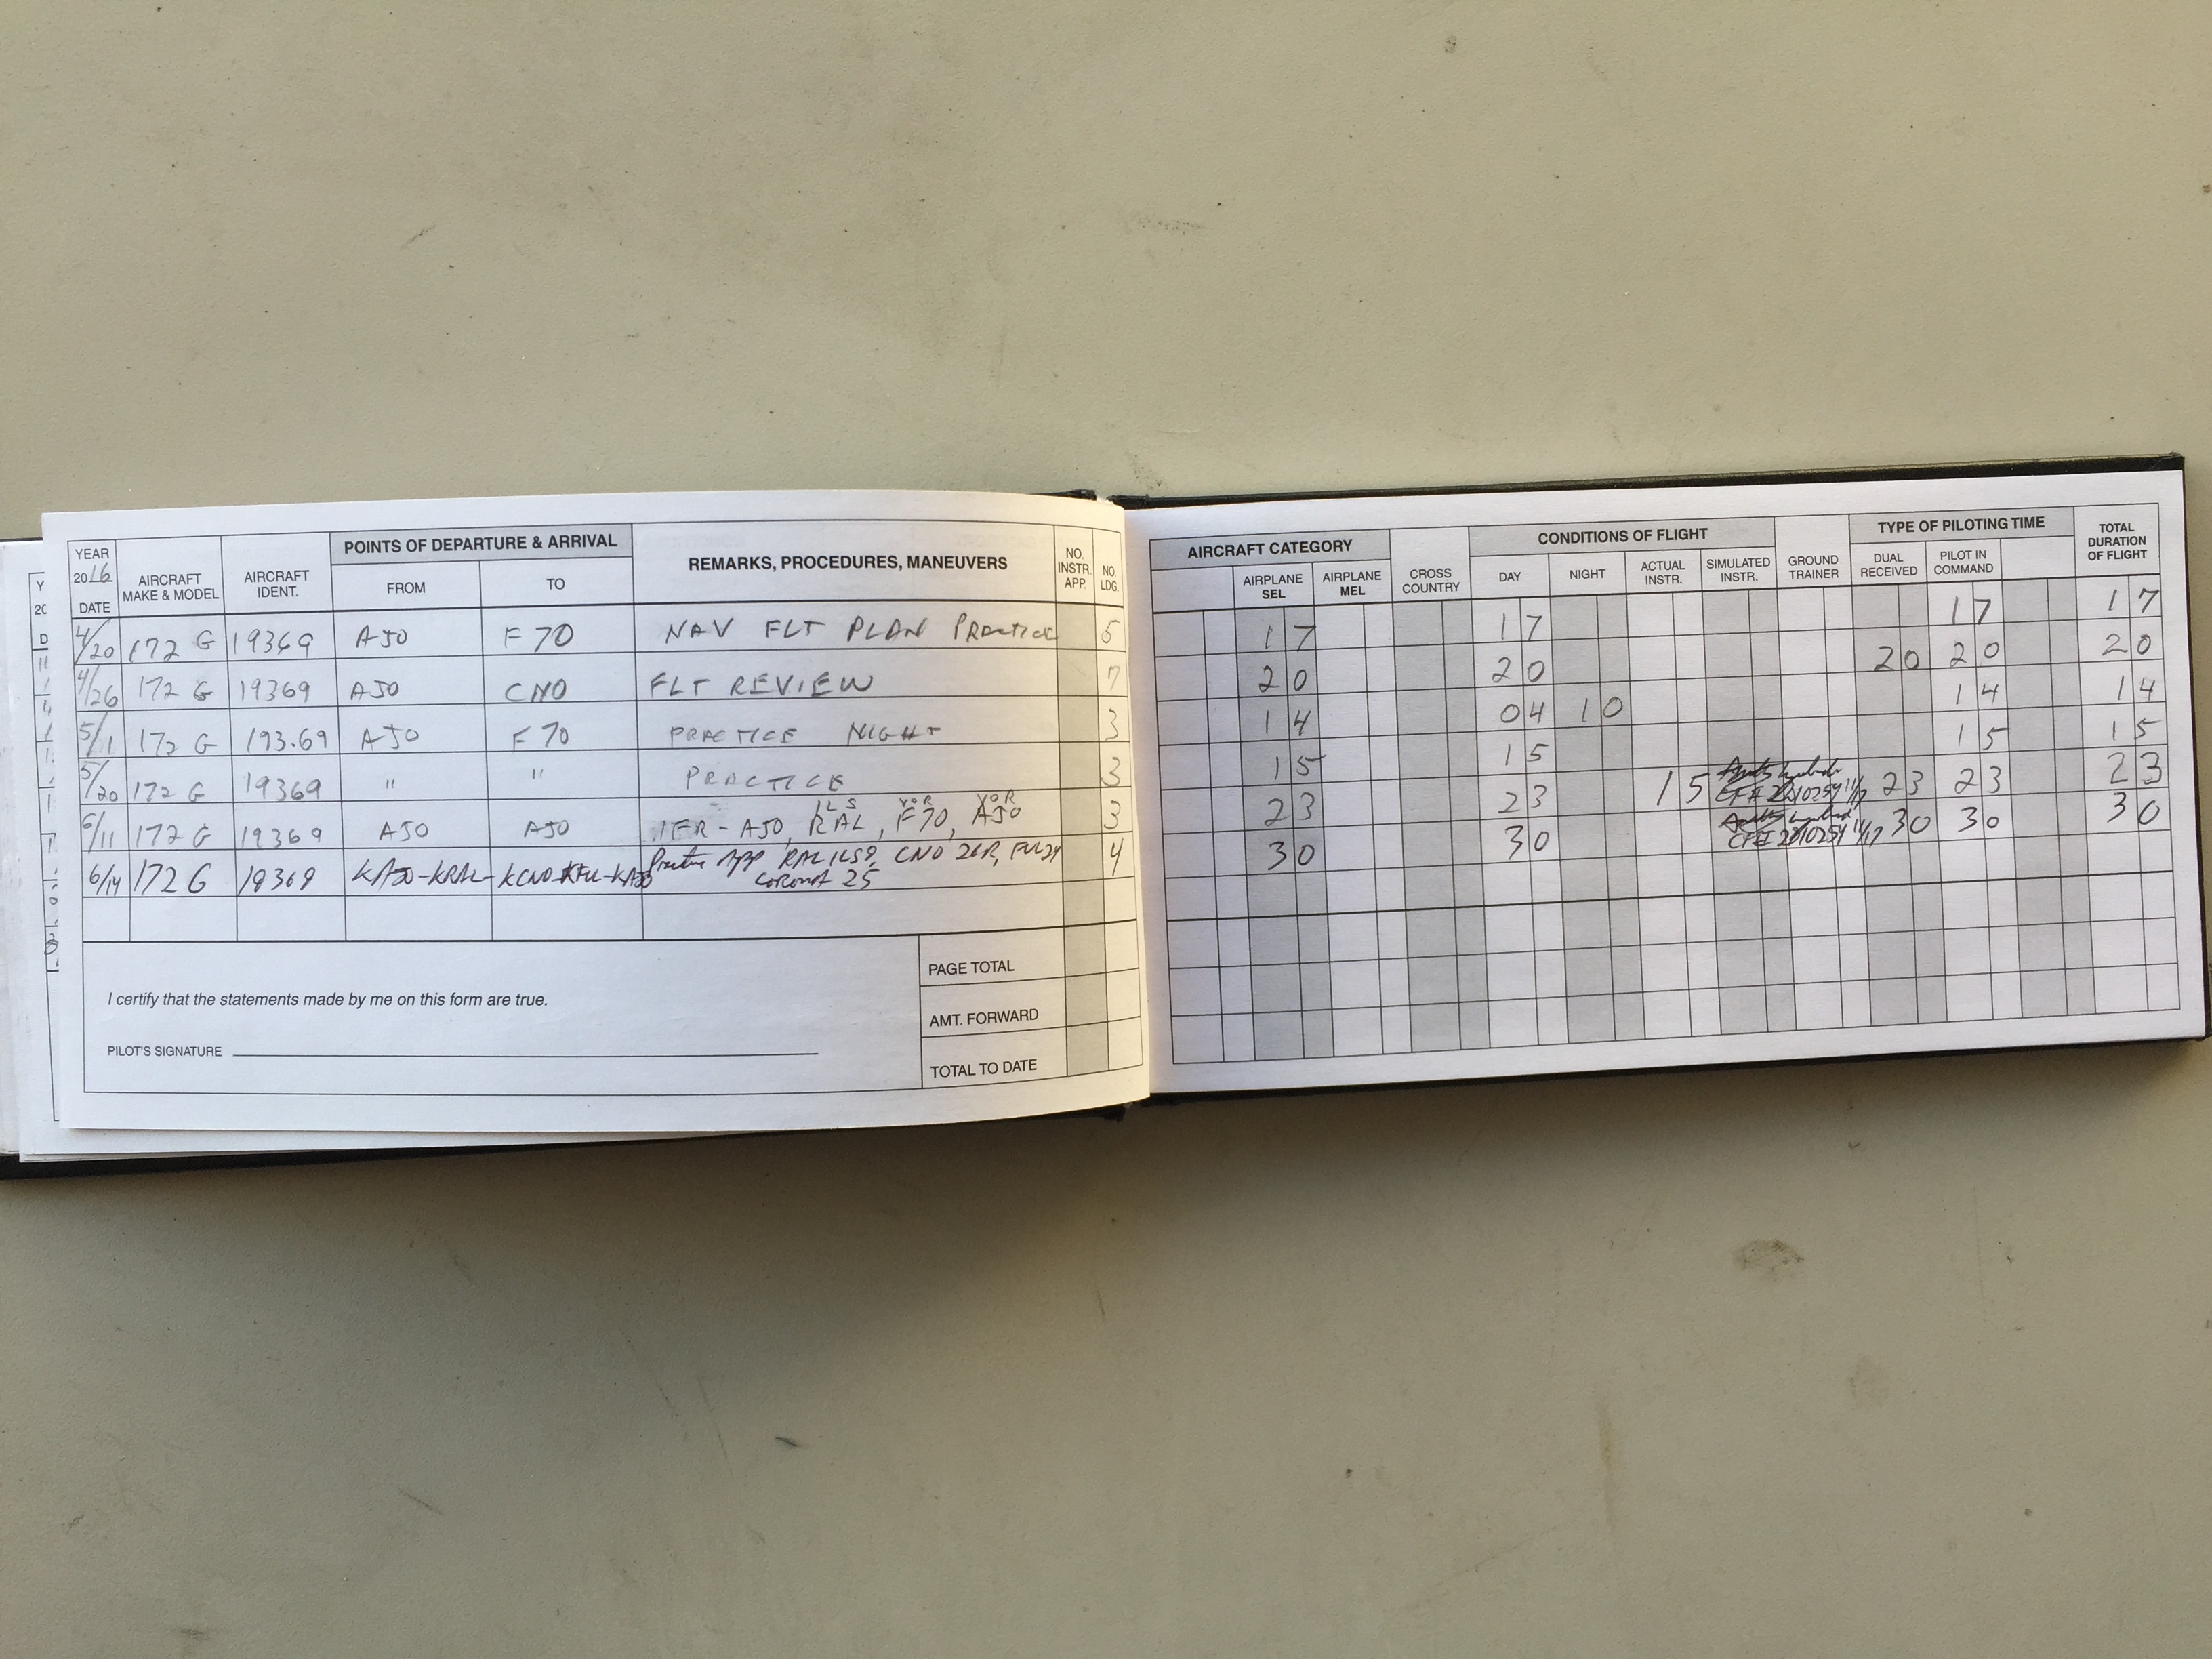 YEAR 2016
DATE
AIRCRAFT MAKE & MODEL
AIRCRAFT IDENT.
POINTS OF DEPARTURE & ARRIVAL
FROM TO
REMARKS, PROCEDURES, MANEUVERS
NO. INSTR. APP.
NO. LDG.
4/20 172 G 19369 AJO F70 NAV FLT PLAN PRACTICE 5
4/26 172 G 19369 AJO CNO FLT REVIEW 7
5/1 172 G 193.69 AJO F70 PRACTICE NIGHT 3
5/20 172 G 19369 " " PRACTICE 3
ILS VOR VOR
6/11 172 G 19369 AJO AJO IFR - AJO, RAL, F70, AJO 3
6/14 172 G 19369 KAJO-KRAL-KCNO-KFUL-KAJO Practice App RAL ILS9, CNO 26R, FUL24 4
Corona 25
I certify that the statements made by me on this form are true.
PILOT'S SIGNATURE
PAGE TOTAL
AMT. FORWARD
TOTAL TO DATE
AIRCRAFT CATEGORY
AIRPLANE SEL
AIRPLANE MEL
CROSS COUNTRY
CONDITIONS OF FLIGHT
DAY NIGHT
ACTUAL INSTR.
SIMULATED INSTR.
GROUND TRAINER
TYPE OF PILOTING TIME
DUAL RECEIVED
PILOT IN COMMAND
TOTAL DURATION OF FLIGHT
1 7 1 7 1 7 1 7
2 0 2 0 2 0 2 0 2 0
1 4 0 4 1 0 1 4 1 4
1 5 1 5 1 5 1 5
2 3 2 3 1 5 2 3 2 3 2 3
3 0 3 0 3 0 3 0 3 0